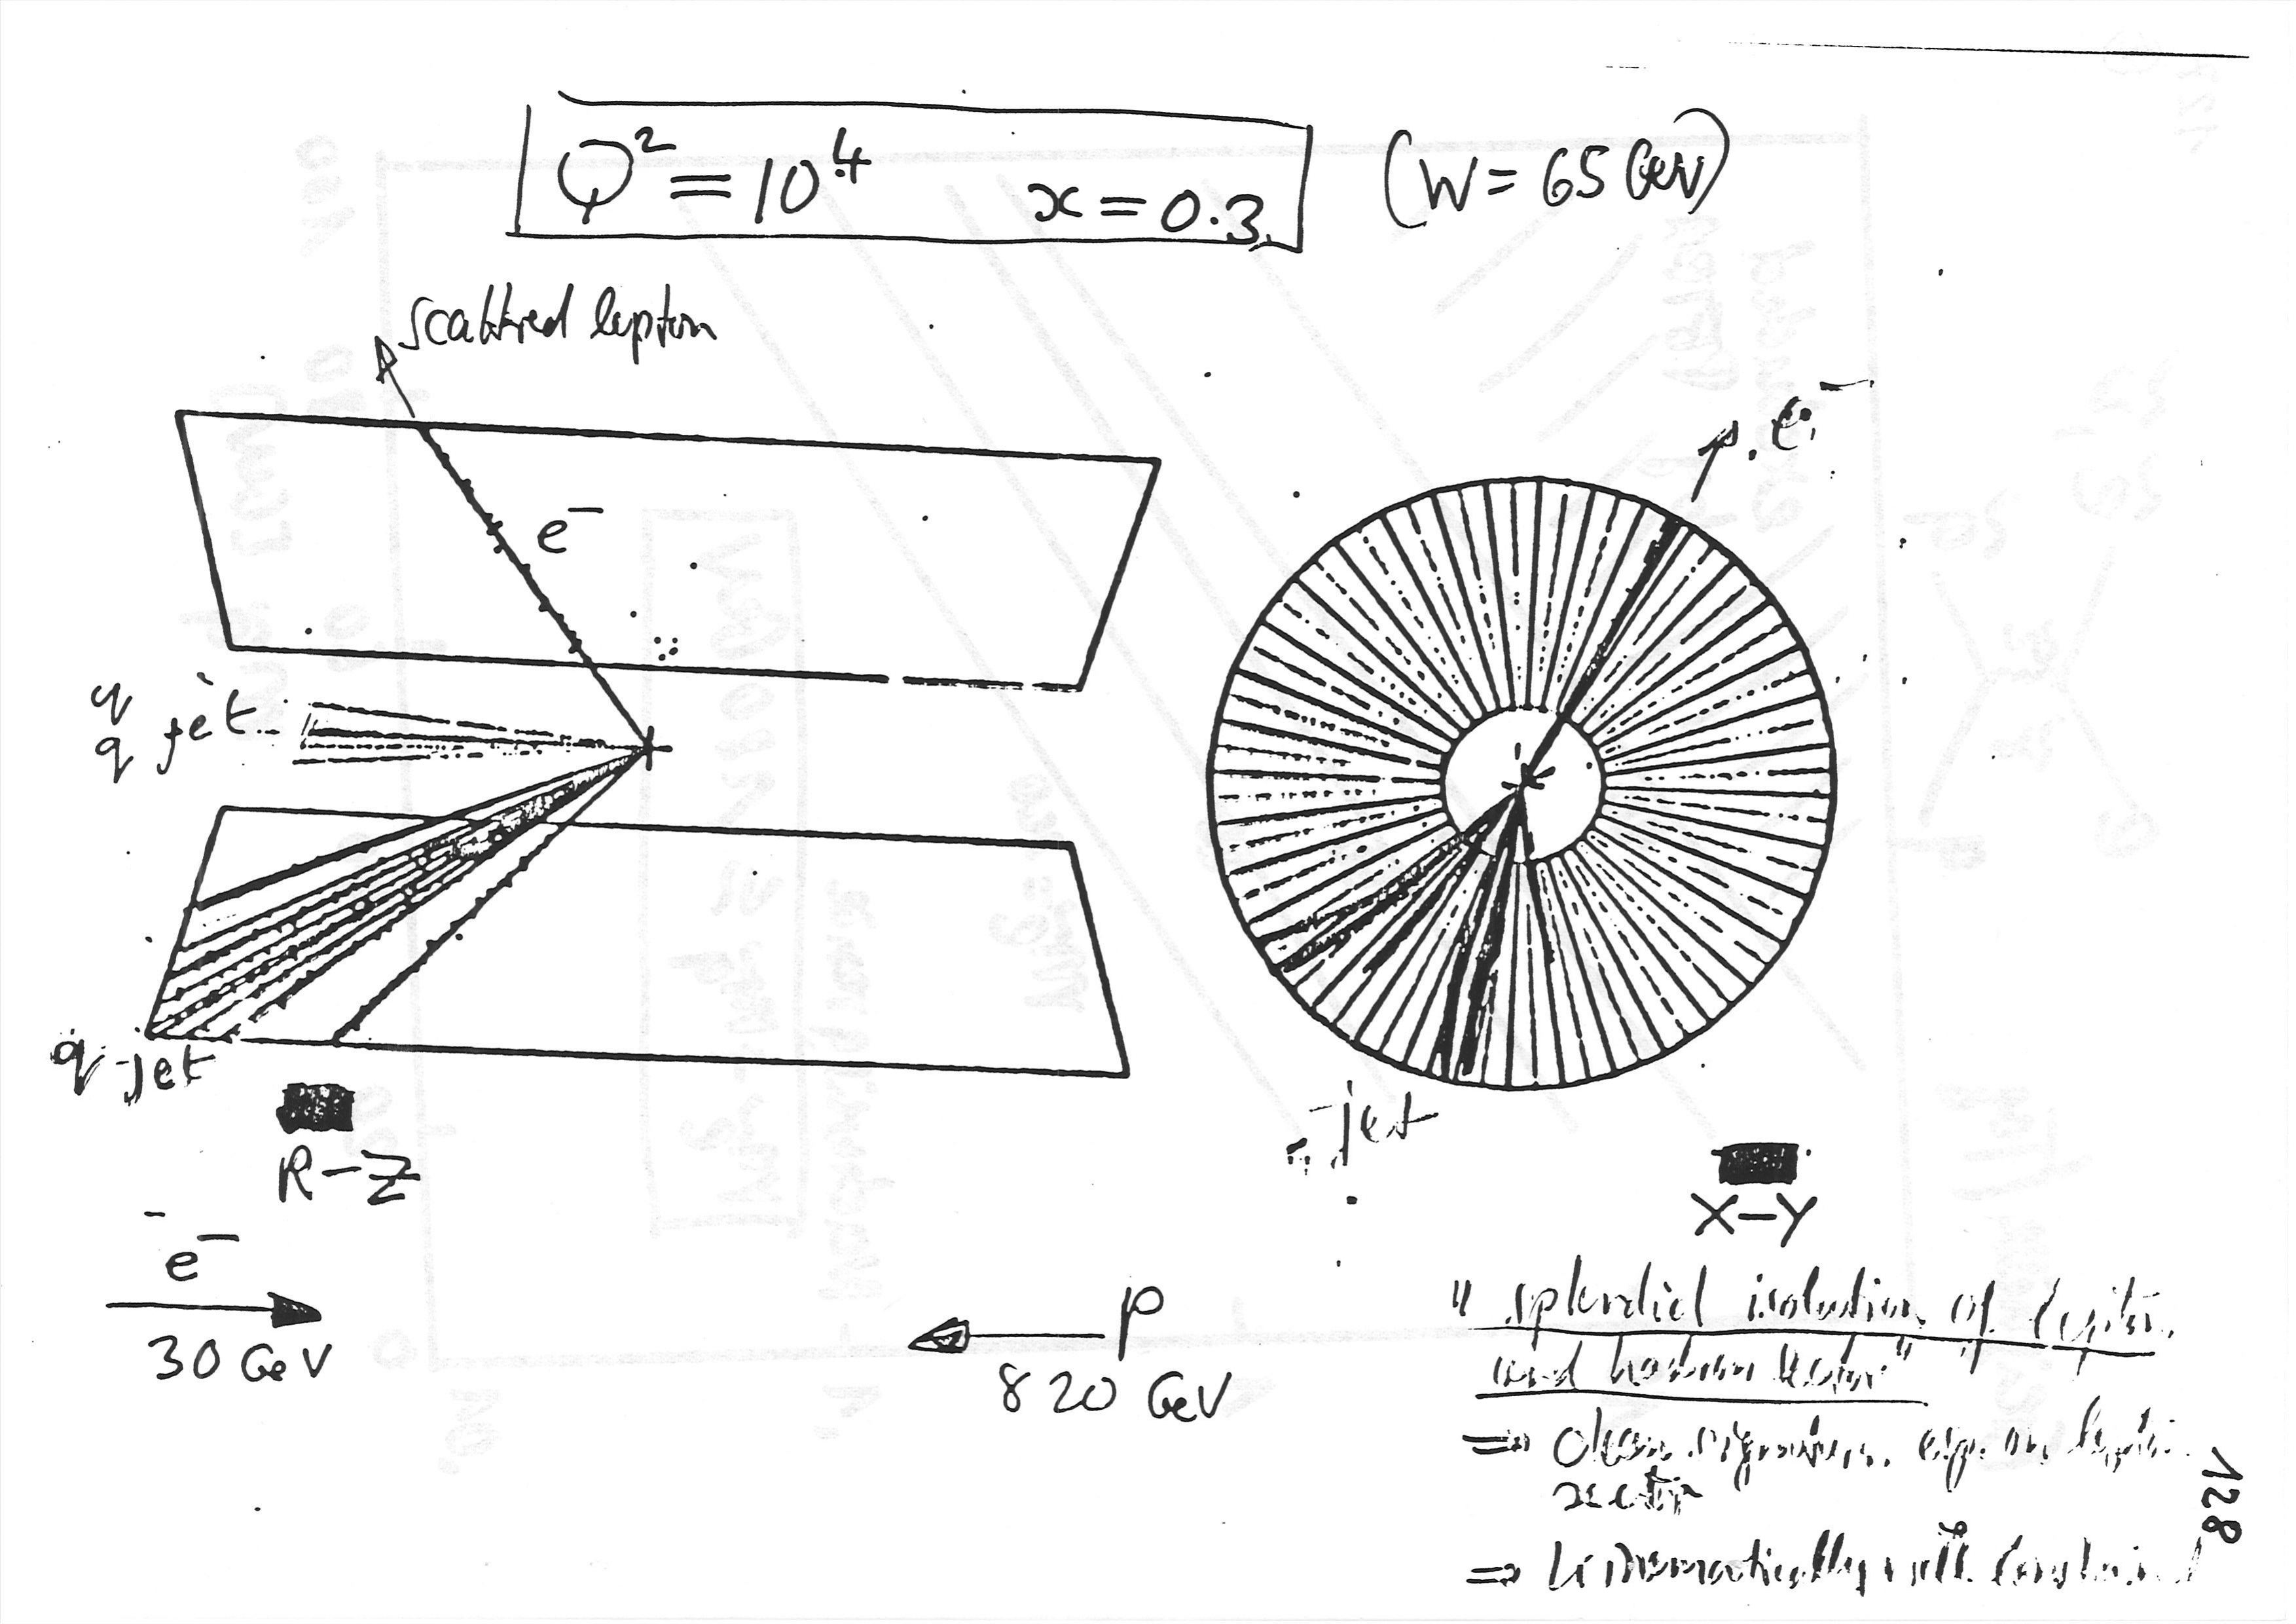 Q² = 10⁴ x = 0.3 (W = 65 GeV)
scattred lepton
e⁻
e⁻
q
q jet
q-jet
jet
R-Z
X-Y
e⁻
30 GeV
p
820 GeV
" splendid isolation of lepton
and hadron
=> clean signature, esp. in lepton
sector
=> kinematically well constrained
128